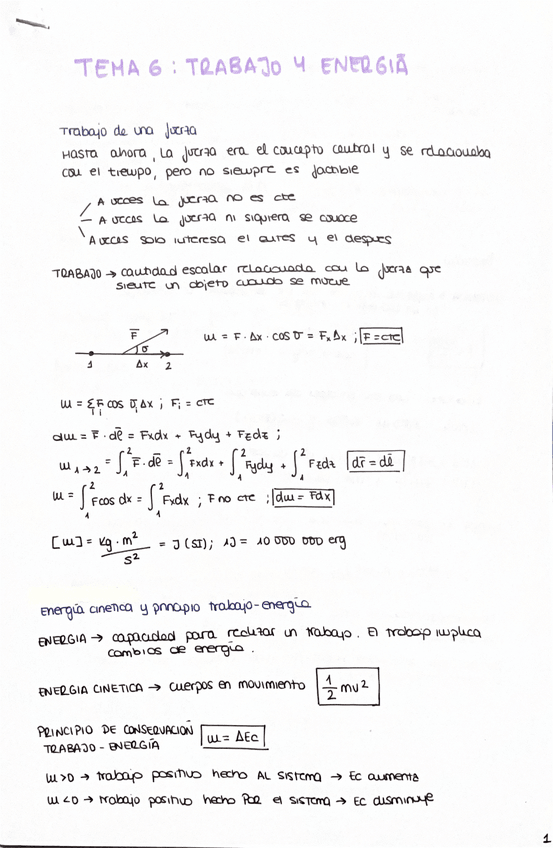 TEMA 6: TRABAJO Y ENERGIA
Trabajo de una fuerza
Hasta ahora, la fuerza era el concepto central y se relacionaba
con el tiempo, pero no siempre es factible
A veces la fuerza no es cte
A veces la fuerza ni siquiera se conoce
A veces solo interesa el antes y el despues
TRABAJO → cantidad escalar relacionada con la fuerza que
siente un objeto cuando se mueve
F̄ σ 1 Δx 2
W = F · Δx · cos σ = Fx Δx ; F = cte
W = Σ Fi cos σi Δx ; Fi = cte
dW = F̄ · dl̄ = Fxdx + Fydy + Fzdz ;
W 1→2 = ∫₁² F̄ · dl̄ = ∫₁² Fxdx + ∫₁² Fydy + ∫₁² Fzdz dr̄ = dl̄
W = ∫₁² Fcos dx = ∫₁² Fxdx ; F no cte ; dW = Fdx
[W] = kg · m²/s² = J (SI); 1J = 10 000 000 erg
Energía cinetica y principio trabajo-energía
ENERGIA → capacidad para realizar un trabajo. El trabajo implica
cambios de energía.
ENERGIA CINETICA → cuerpos en movimiento 1/2 mv²
PRINCIPIO DE CONSERVACIÓN
TRABAJO - ENERGÍA W = ΔEc
W > 0 → trabajo positivo hecho AL sistema → Ec aumenta
W < 0 → trabajo positivo hecho POR el sistema → Ec disminuye
1